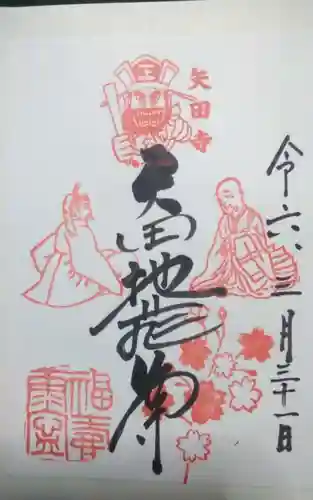 矢田寺
令六、三月三十一日
矢田地蔵尊
王